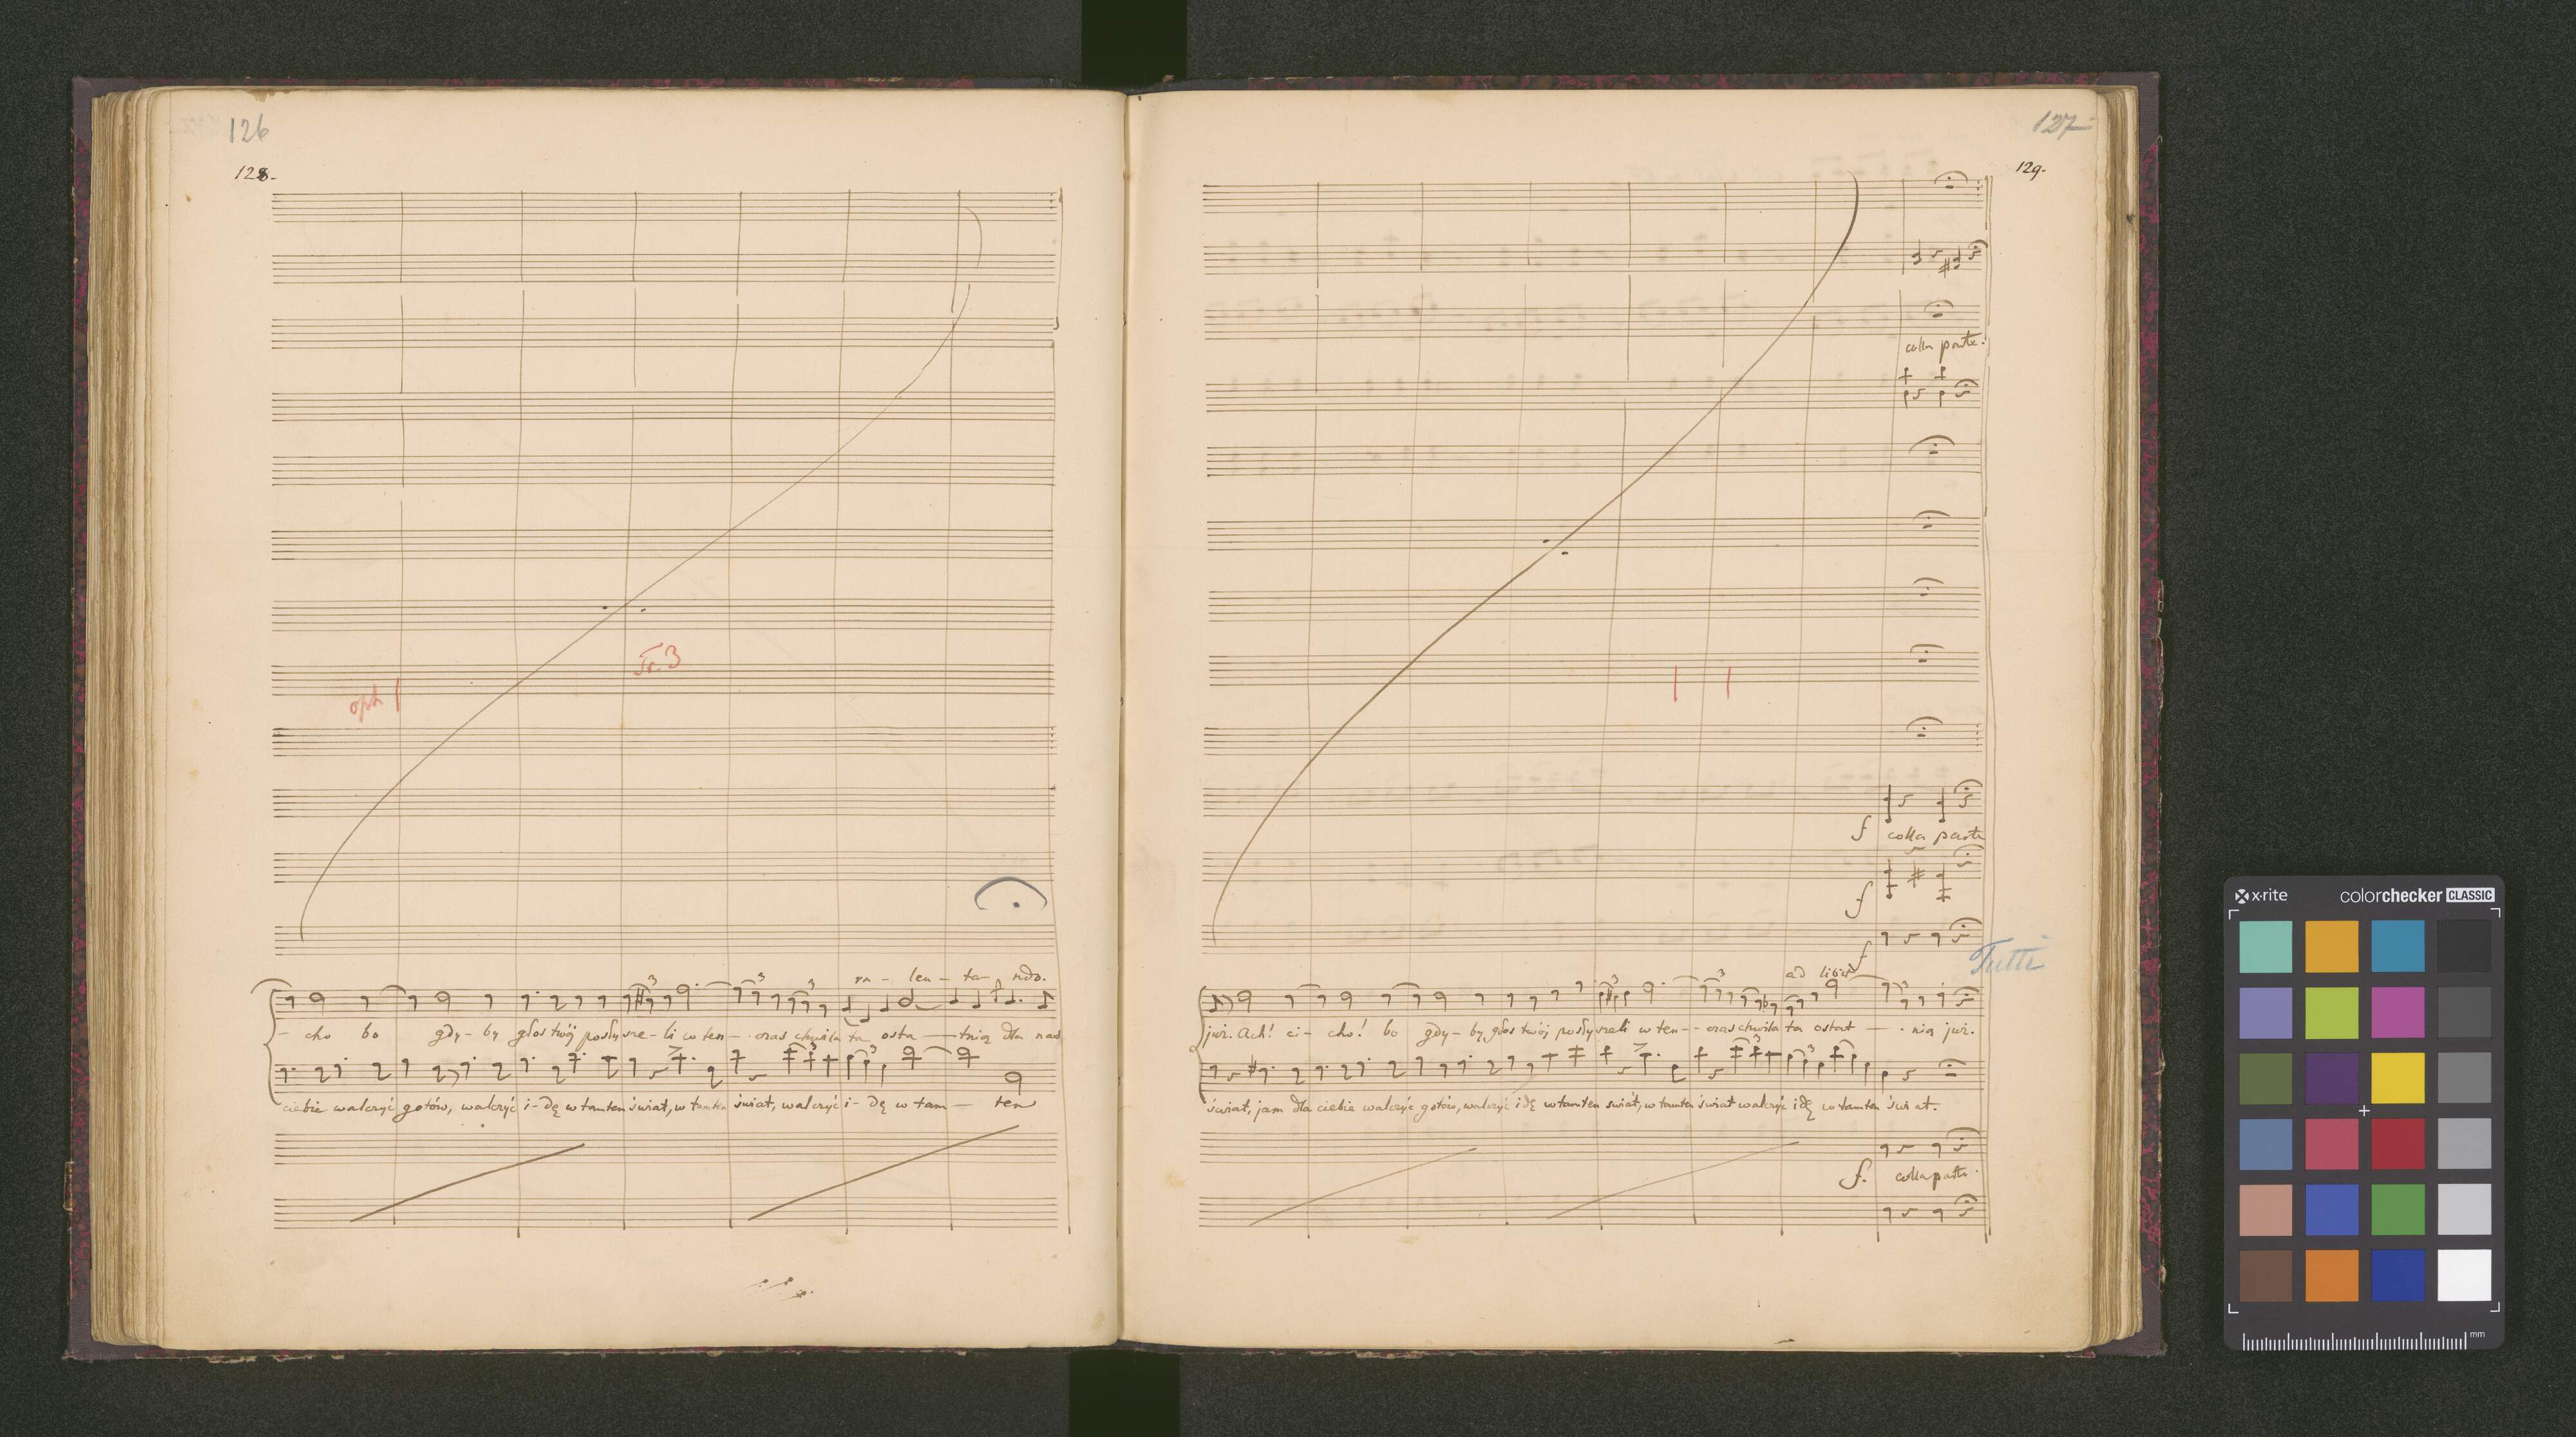 126
128.
Tr. 3
oph
ra - len - ta - ndo.
- cho bo gdy - by głos twój posłysze - li w ten - czas chwila ta osta - tnią dla nas
ciebie walczyć gotów, walczyć i - dę w tamten świat, w tamten świat, walczyć i - dę w tam - ten
127
129.
colla parte.
f colla parte
f
f
Tutti
ad libit
już. Ach! ci - cho! bo gdy - by głos twój posłyszeli w ten - czas chwila ta ostat - nią już.
świat, jam dla ciebie walczyć gotów, walczyć idę w tamten świat, w tamten świat walczyć idę w tamten świat.
f. colla parte
x-rite colorchecker CLASSIC
mm